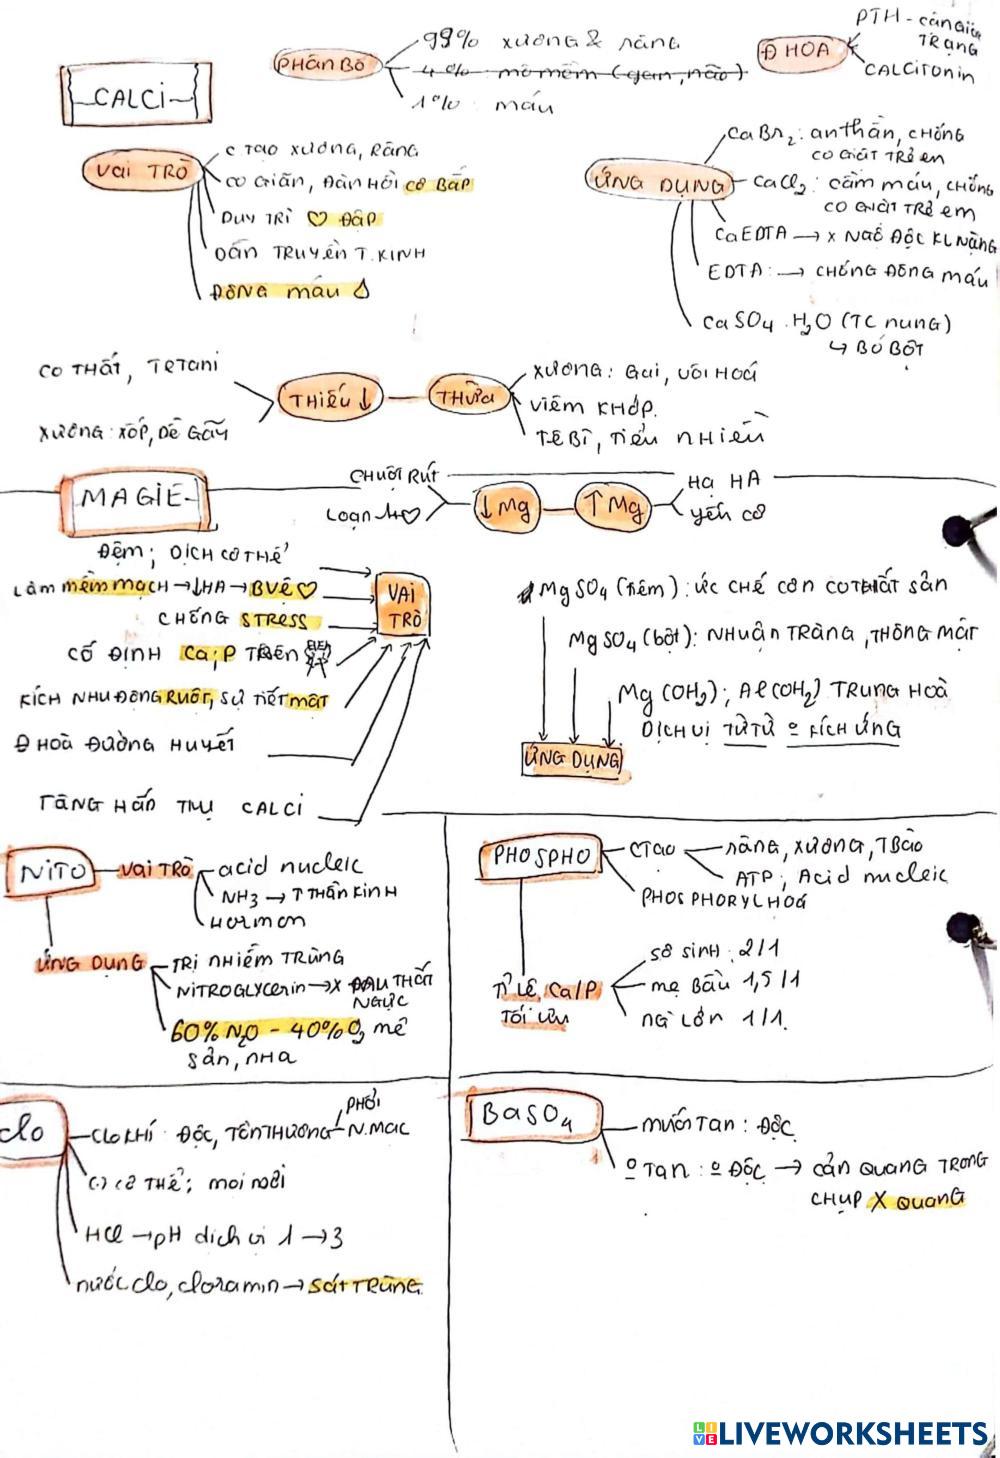 CALCI
PHÂN BỐ
99% XƯƠNG & RĂNG
1% : MÁU
Đ HOÀ
PTH - CẬN GIÁP TRẠNG
CALCITONIN
VAI TRÒ
C TẠO XƯƠNG, RĂNG
CO GIÃN, ĐÀN HỒI CƠ BẮP
DUY TRÌ ♡ ĐẬP
DẪN TRUYỀN T.KINH
ĐÔNG MÁU
ỨNG DỤNG
CaBr₂ : an thần, CHỐNG
CO GIẬT TRẺ em
CaCl₂ : cầm máu, CHỐNG
CO GIẬT TRẺ em
CaEDTA → x NGỘ ĐỘC KL NẶNG
EDTA : → CHỐNG ĐÔNG MÁU
CaSO₄ . H₂O (TC nung)
↳ BÓ BỘT
CO THẮT, TETANI
XƯƠNG : XỐP, DỄ GÃY
THIẾU ↓
THỪA
XƯƠNG : GAI, VÔI HOÁ
VIÊM KHỚP.
TÊ BÌ, TIỂU NHIỀU
MAGIE
CHUỘT RÚT
LOẠN
↓ Mg
↑ Mg
HẠ HA
yếu cơ
Đệm ; DỊCH CƠ THỂ
LÀM mềm mạch → ↓HA → BVỆ ♡
CHỐNG STRESS
CỐ ĐỊNH Ca ; P TRÊN
KÍCH NHU ĐỘNG RUỘT, SỰ TIẾT MẬT
Đ HOÀ ĐƯỜNG HUYẾT
TĂNG HẤP THU CALCI
VAI TRÒ
MgSO₄ (tiêm) : ỨC CHẾ CƠN CO THẮT SẢN
MgSO₄ (bột) : NHUẬN TRÀNG, THÔNG MẬT
Mg (OH₂) ; Al (OH₂) TRUNG HOÀ
DỊCH VỊ TỪ TỪ º KÍCH ỨNG
ỨNG DỤNG
NITO
VAI TRÒ
acid nucleic
NH3 → ↑ THẦN KINH
HORMON
ỨNG DỤNG
TRỊ NHIỄM TRÙNG
NITROGLYCERIN → X ĐAU THẮT NGỰC
60% N₂O - 40% O₂ mê
sản, nha
PHOSPHO
CTẠO
RĂNG, XƯƠNG, TBÀO
ATP ; Acid nucleic
PHOSPHORYL HOÁ
TỈ LỆ Ca/P
TỐI ƯU
SƠ SINH : 2/1
mẹ BẦU 1,5/1
NG LỚN 1/1.
Clo
Clo KHÍ : ĐỘC, TỔN THƯƠNG
PHỔI
N.MẠC
(-) CƠ THỂ ; mọi nơi
HCl → pH dịch vị 1 → 3
nước Clo, cloramin → SÁT TRÙNG
BaSO₄
MUỐI TAN : ĐỘC
º TAN : º ĐỘC → CẢN QUANG TRONG
CHỤP X QUANG
LIVE LIVEWORKSHEETS